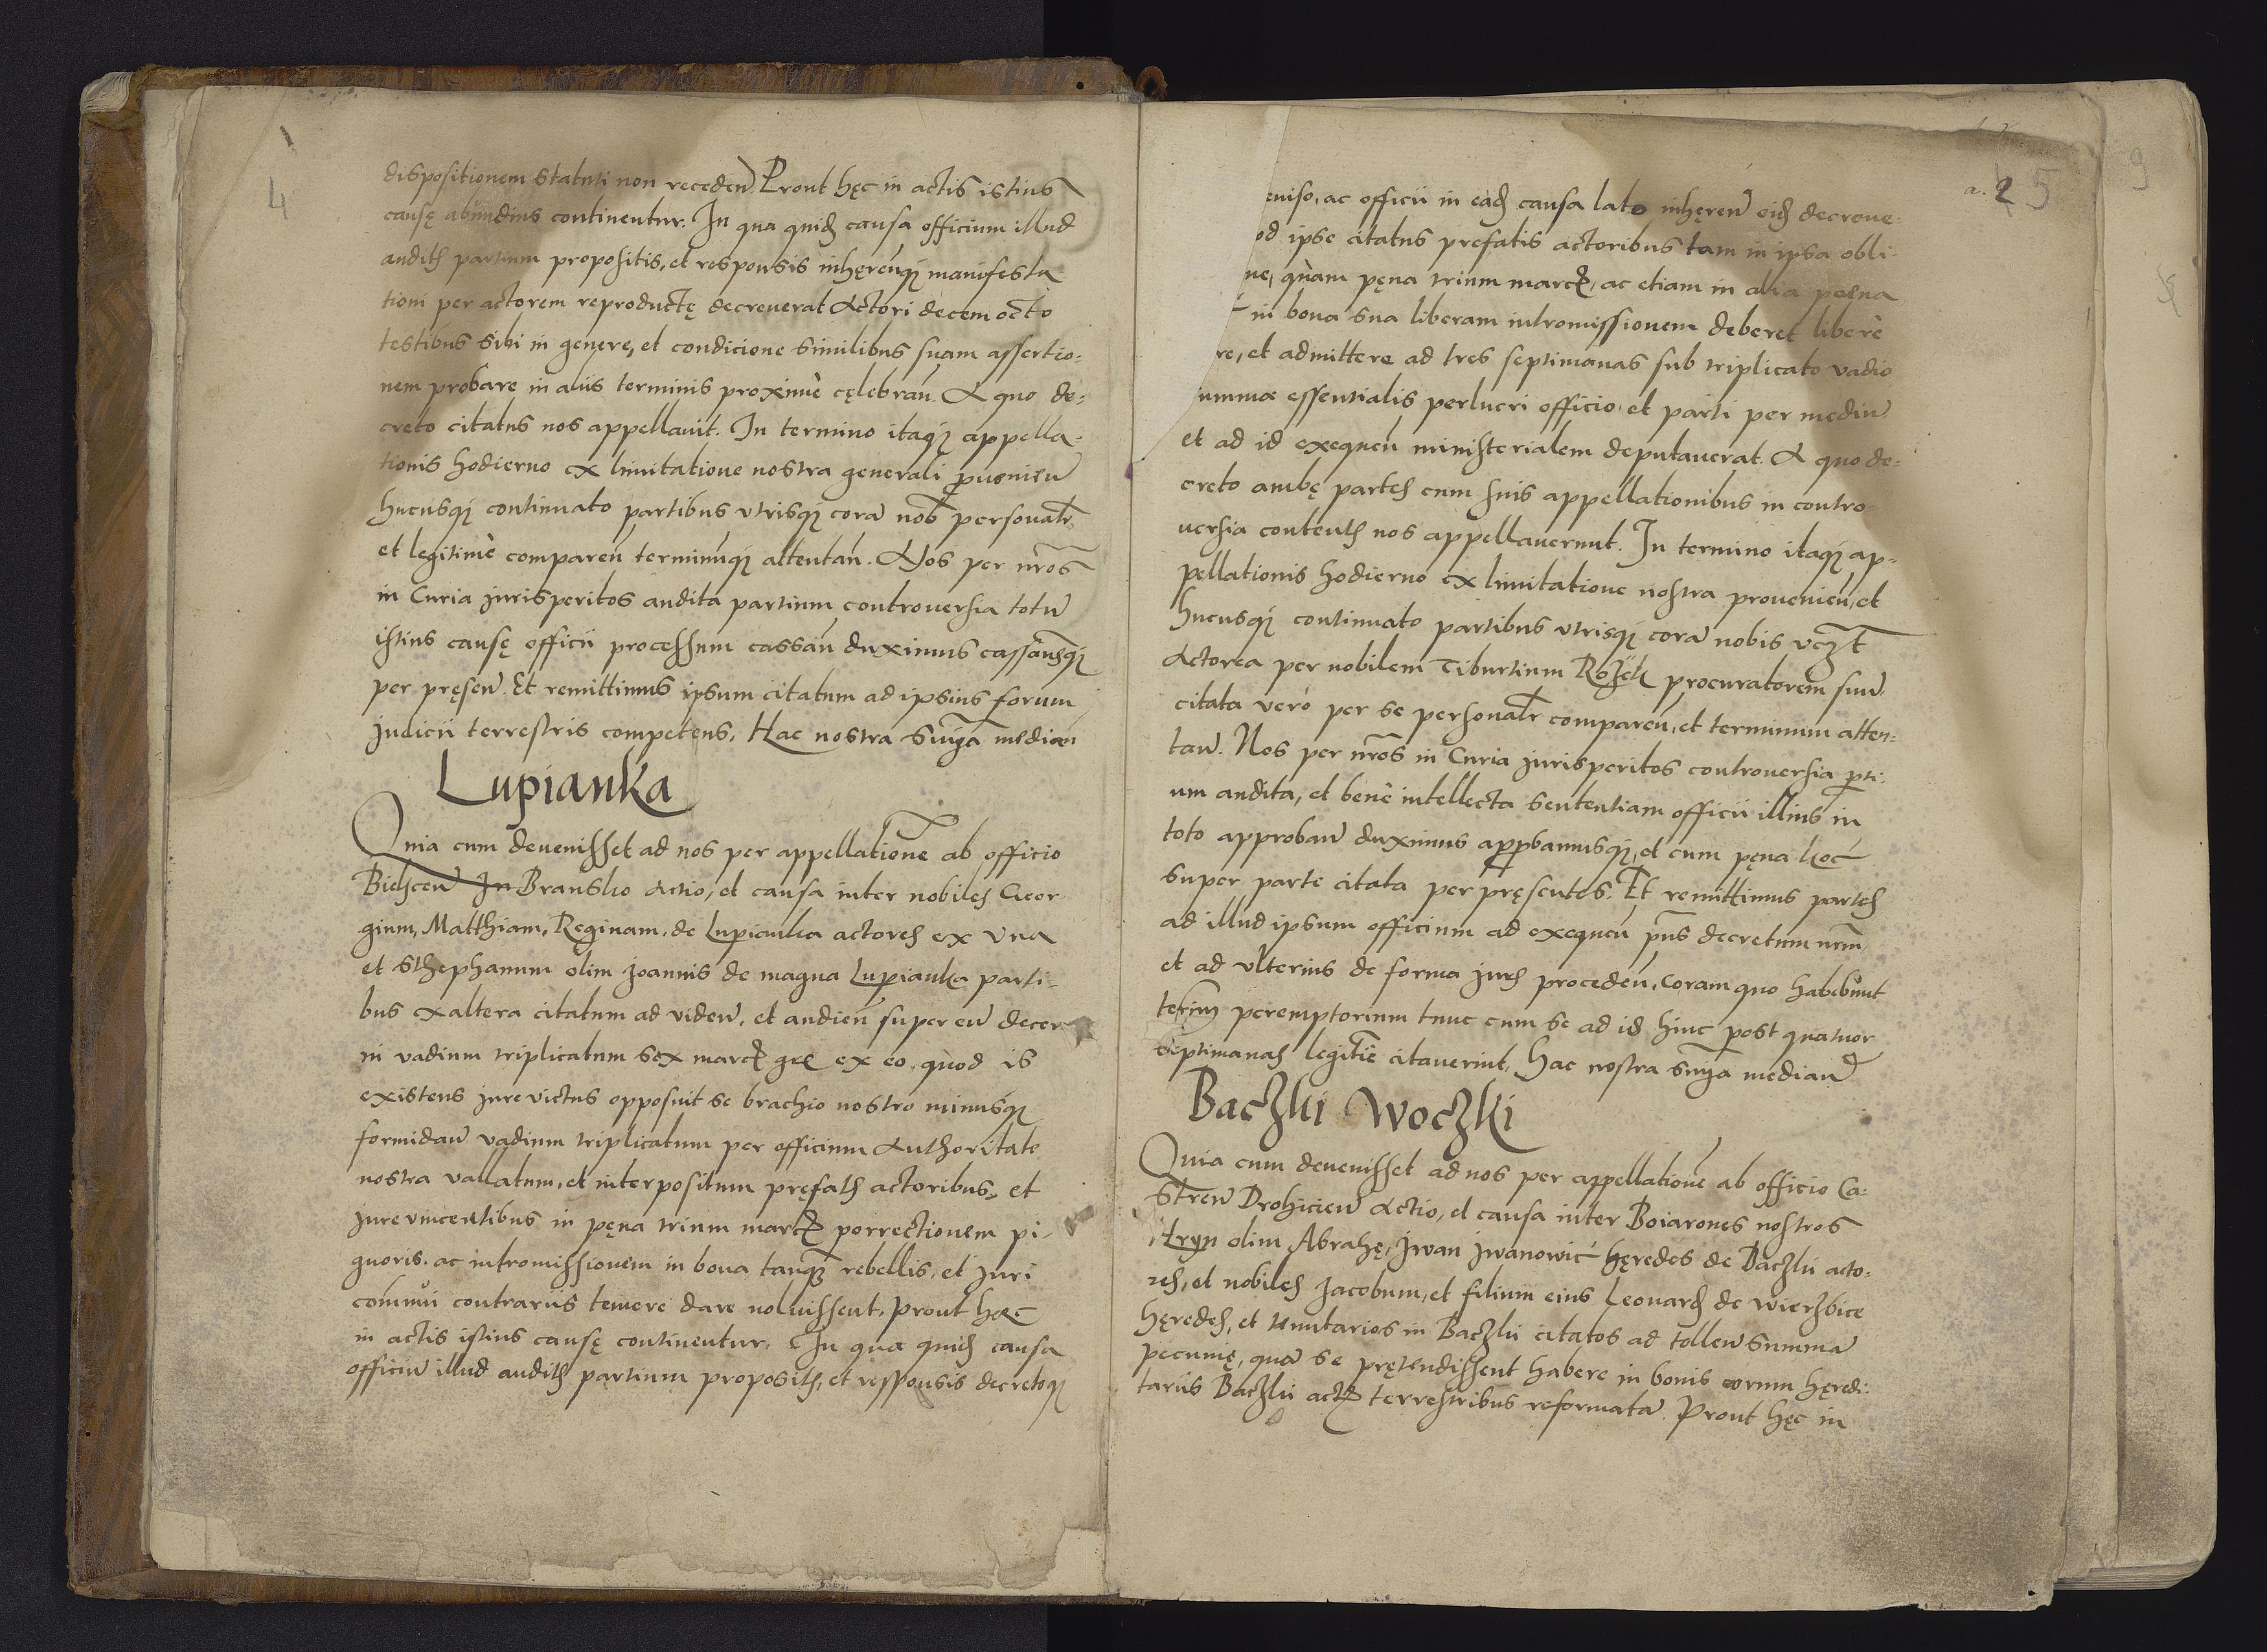 4
dispositionem statuti non receden̄. Prout hęc in actis istius
causę abundius continentur. In qua quid causa officium illud
audit partium propositis, et responsis inhęrenq manifesta
tioni per actorem reproductę decreverat Actori decem octo
testibus sibi in genere, et condicione similibus suam assertio:
nem probare in aliis terminis proximè cęlebran̄. A quo de:
creto citatus nos appellauit. In termino itaq appella:
tionis hodierno ex limitatione nostra generali puenien̄
hucusq continuato partibus vtrisq corā nob personalr
et legitimè comparen̄ terminūq attentan̄. Nos per nr̄os
in Curia jurisperitos audita partium controuersia totū
istius causę officii processum cassan̄ duximus cassamusq
per pręsen̄. Et remittimus ipsum citatum ad ipsius forum
judicii terrestris competens. Hac nostra sniā median̄
Lupianka
Quia cum deuenisset ad nos per appellationē ab officio
Bielscen̄ In Bransko Actio, et causa inter nobiles Geor
gium, Matthiam, Reginam, de Lupianka actores ex vna
et Sthephanum olim Joannis de magna Lupianka parti:
bus exaltera citatum ad viden̄, et audien̄ super eū decer
ni vadium triplicatum sex marc gr ex eo, quòd is
existens jure victus opposuit se brachio nostro minusq
formidan̄ vadium triplicatum per officium Authoritate
nostra vallatum, et interpositum pręfatis actoribus, et
jure vincentibus in pęna trium marc porrectionem pi-
gnoris, ac intromissionem in bona tanq rebellis, et juri
commūi contrariis temere dare noluissent. Prout hęc
in actis istius causę continentur. In qua quid causa
officiū illud audit partium proposit, et responsis decretoq
a. 2 5
9
euiso, ac officii in ead causa lato inhęren̄ eid decreue:
od ipse citatus prefatis actoribus tam in ipsa obli-
ne, quàm pęna trium marc, ac etiam in alia poena
in bona sua liberam intromissionem deberet liberè
re, et admittere ad tres septimanas sub triplicato vadio
ummæ essentialis perlucri officio, et parti per mediū
et ad id exequen̄ ministerialem deputauerat. A quo de:
creto ambę partes cum suis appellationibus in contro
uersia content nos appellauerunt. In termino itaq ap:
pellationis hodierno ex limitatione nostra prouenien̄, et
hucusq continuato partibus vtrisq corā nobis vczt
Actorea per nobilem Tiburtium procuratorem suū
citata verò per se personalr comparen̄, et terminum atten:
tan̄. Nos per nr̄os in Curia jurisperitos controuersia pti:
um audita, et benè intellecta sententiam officii illius in
toto approban̄ duximus approbamusq, et cum pęna hoc
super parte citata per pręsentes. Et remittimus partes
ad illud ipsum officium ad exequen̄ pn̄s decretum nr̄m
et ad vlterius de forma juris proceden̄. Coram quo habebunt
termin̄ peremptorium tunc cum se ad id hinc post quatuor
septimanas legitimē citauerint. Hac nostra sniā median̄
Baczki Woczki
Quia cum deuenisset ad nos per appellationē ab officio Ca:
stren̄ Drohicien̄ Actio, et causa inter Boiarones nostros
Hryn olim Abrahę, Jwan Jwanowić hęredes de Baczki acto:
res, et nobiles Jacobum, et filium eius Leonard de Wierzbice
hęredes, et tenutarios in Baczki citatos ad tollen̄ summā
pecunię, quā se pręttendissent habere in bonis eorum hęredi:
tariis Baczki act terrestribus reformatā. Prout hęc in